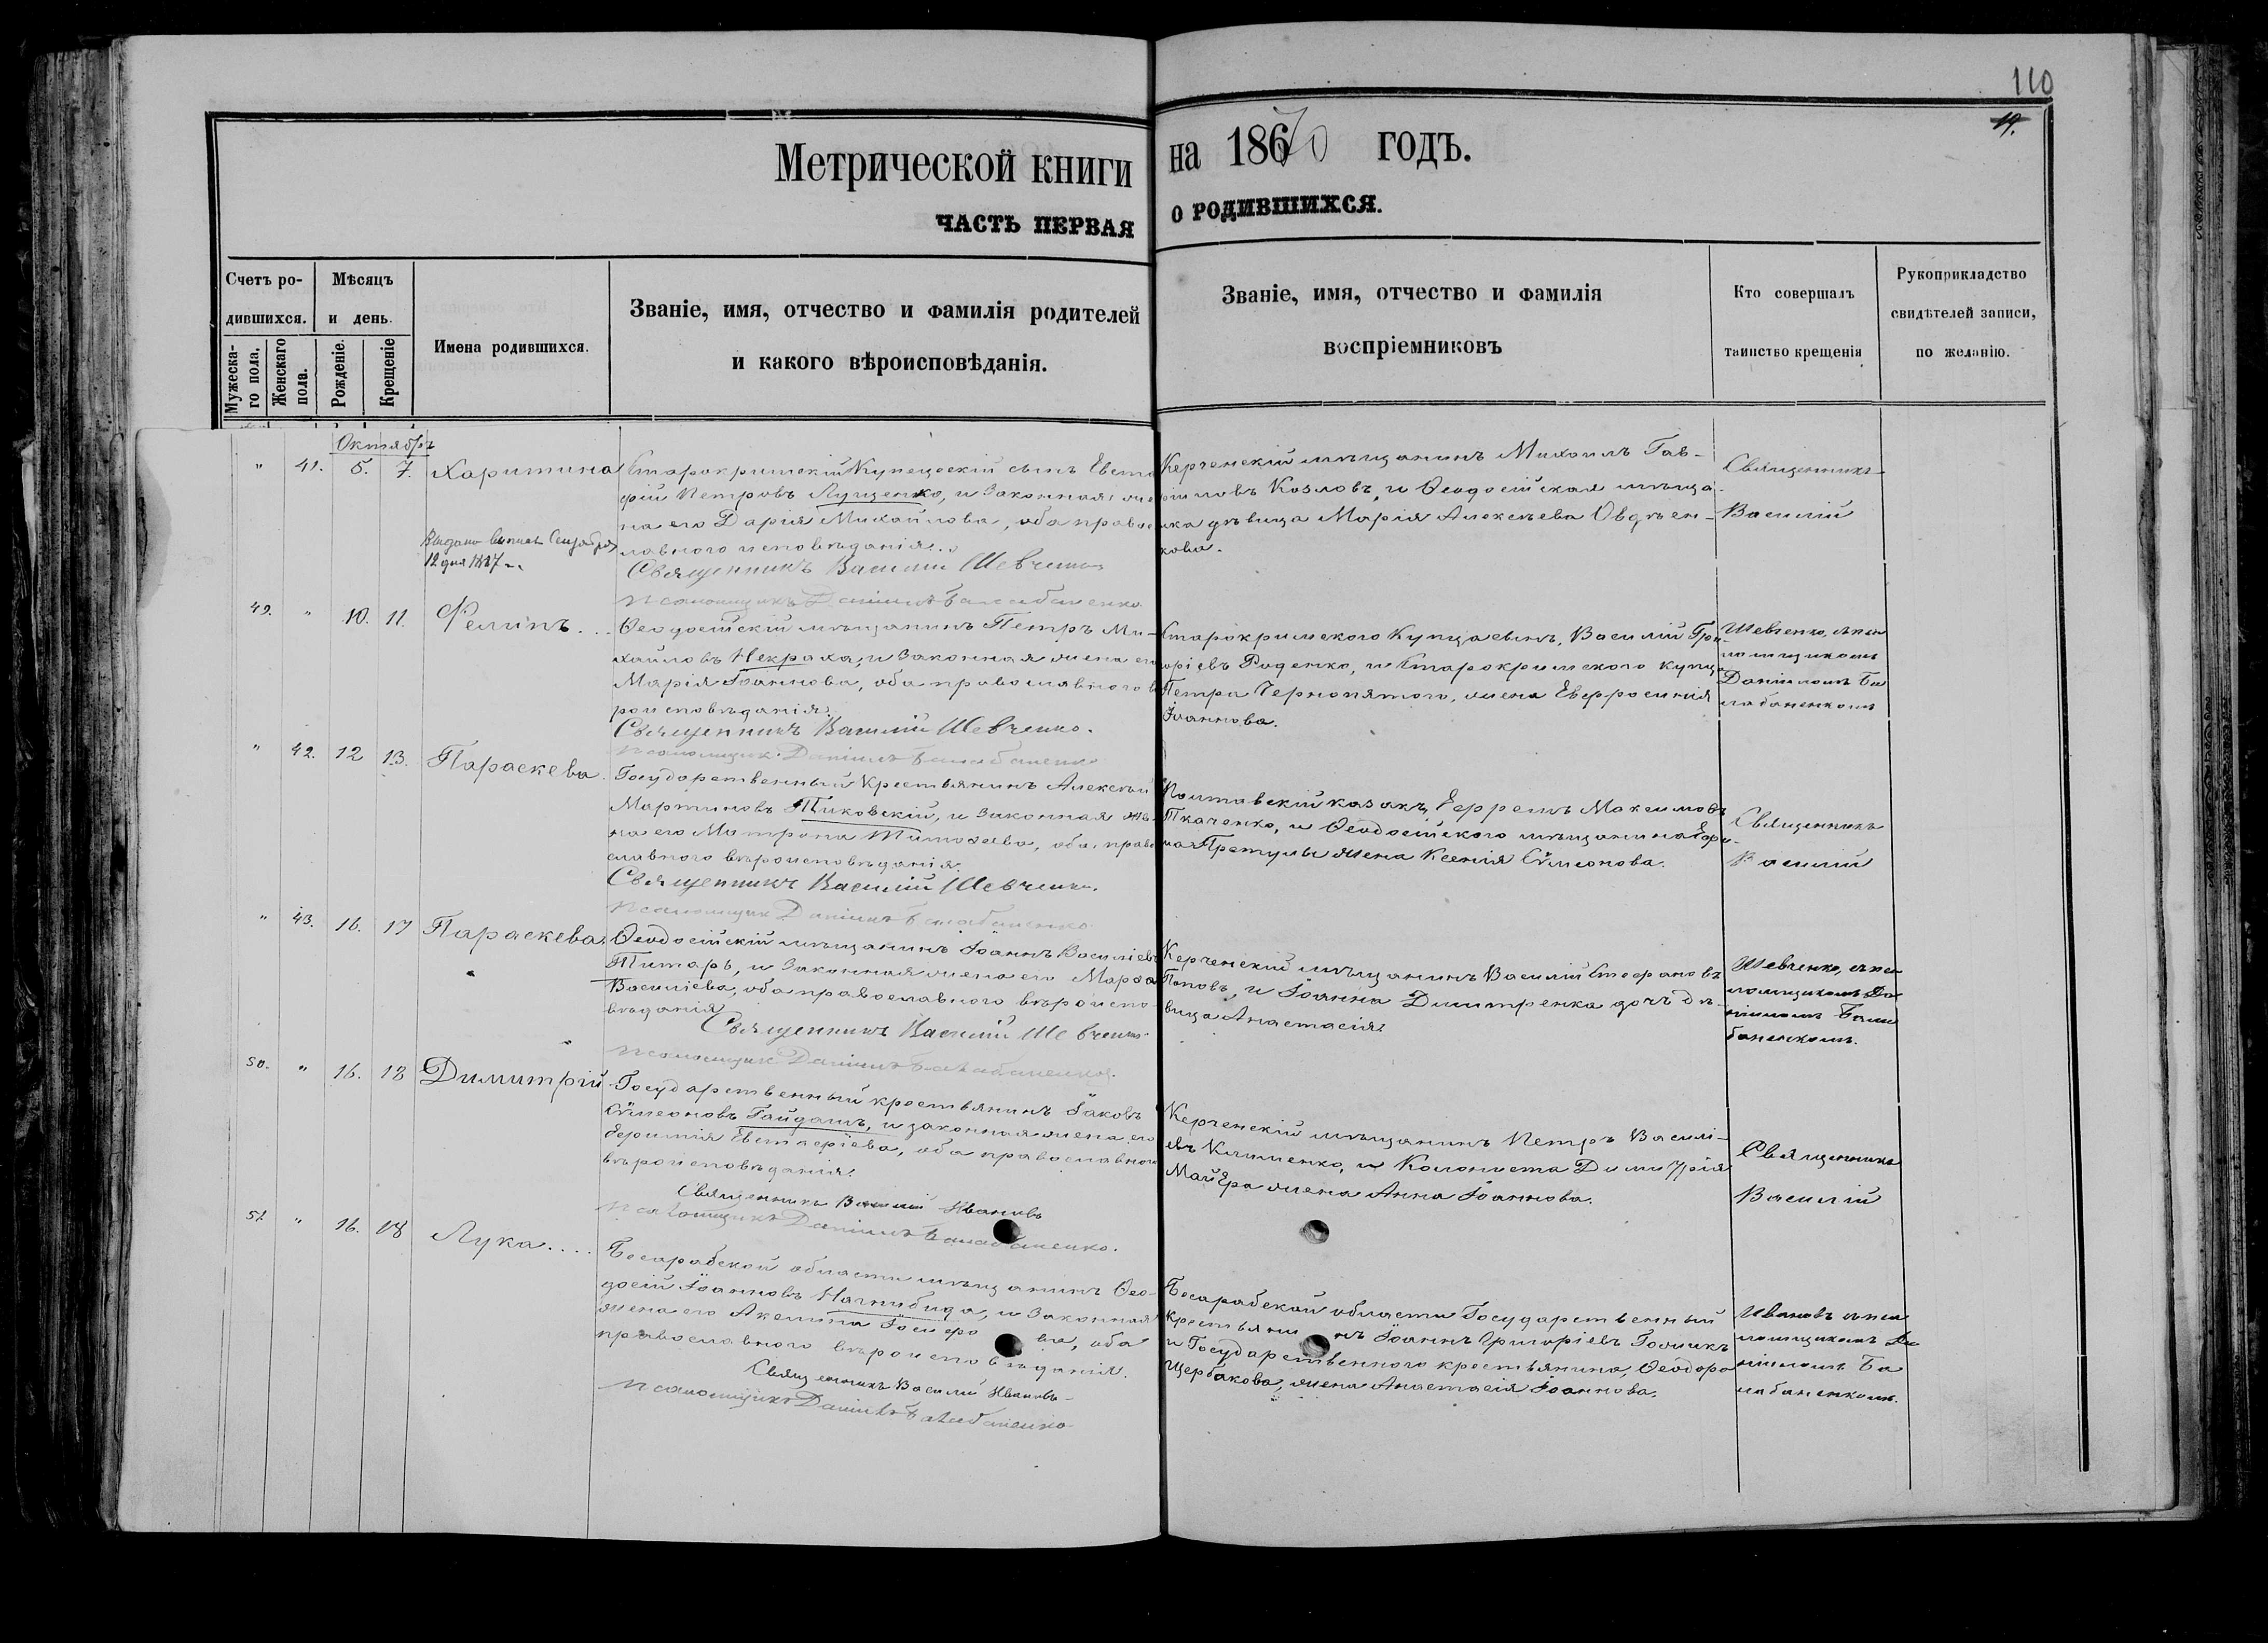 110
19.
Метрической книги на 1870 годъ.
ЧАСТЬ ПЕРВАЯ О РОДИВШИХСЯ.
Счетъ ро-
дившихся.
Мужеска-
го пола.
Женскаго
пола.
Мѣсяцъ
и день.
Рожденіе.
Крещеніе
Имена родившихся.
Званіе, имя, отчество и фамилія родителей
и какого вѣроисповѣданія.
Званіе, имя, отчество и фамилія
воспріемниковъ
Кто совершалъ
таинство крещенія
Рукоприкладство
свидѣтелей записи,
по желанію.
Октябрь
" 41. 5. 7. Харитина
Старокримскій Купецескій сынъ Евста
фій Петровъ Луценко, и Законная же
на его Дарія Михайлова, оба правос
лавного исповѣданія.
Священникъ Василій Шевченко
Псаломщикъ Даніилъ Балабаненко
12 дня 1887
Керченскій мѣщанинъ Михаилъ Гав-
ріиловъ Козловъ, и Ѳеодосійская мѣща-
нка дѣвица Марія Алексѣева Овдѣен-
кова.
Священникъ
Василій
49. " 10. 11. Филипъ...
Ѳеодосійскій мѣщанинъ Петръ Ми-
хайловъ Некраха, и Законная жена его
Марія Іоаннова, оба православного вѣ
роисповѣданія.
Священникъ Василій Шевченко.
Псаломщикъ Даніилъ Балабаненко
Старокримского Купца сынъ, Василій Гри-
горіевъ Роденко, и Старокримского купца
Петра Чернопятого, жена Евфросинія
Іоаннова.
Шевченко, съ пса
ломщикомъ
Даніиломъ Ба
лабаненкомъ
" 42. 12 13. Параскева.
Государственный Крестьянинъ Алексѣй
Мартиновъ Тиковскій, и Законная же-
на его Матрона Тимоѳеева, оба право
славного вѣроисповѣданія.
Священникъ Василій Шевченко.
Псаломщикъ Даніилъ Балабаненко
Полтавскій казакъ, Ефремъ Максимовъ
Ткаченко, и Ѳеодосійского мѣщанина Ефи-
ма Претулы жена Ксенія Сѵмеонова.
Священникъ
Василій
" 43. 16. 17 Параскева.
Ѳеодосійскій мѣщанинъ Іоаннъ Василіевъ
Титарь, и Законная жена его Марѳа
Василіева, оба православного вѣроиспо-
вѣданія
Священникъ Василій Шевченко
Псаломщикъ Даніилъ Балабаненко.
Керченскій мѣщанинъ Василій Стефановъ
Поповъ, и Іоанна Димитренка дочъ дѣ-
вица Анастасія.
Шевченко, съ пса
ломщикомъ Да
ніиломъ Бала
баненкомъ.
50. " 16. 18 Димитрій
Государственный крестьянинъ Іаковъ
Сѵмеоновъ Гайдашъ, и законная жена его
Евфимія Евстафіева, оба православного
вѣроисповѣданія.
Священникъ Василій Ивановъ
Псаломщикъ Даніилъ Балабаненко.
Керченскій мѣщанинъ Петръ Василі-
евъ Клименко, и Колониста Димитрія
Майера жена Анна Іоаннова.
Священникъ
Василій
51. " 16. 18 Лука....
Бесарабской области мѣщанинъ Ѳео-
досій Іоанновъ Нагнибида, и Законная
жена его Акелина Іосифова, оба
православного вѣроисповѣданія.
Священникъ Василій Ивановъ
Псаломщикъ Даніилъ Балабаненко
Бесарабской области Государственный
крестьянинъ Іоаннъ Григоріевъ Голикъ
и Государственного крестьянина, Ѳеодора
Щербакова, жена Анастасія Іоаннова.
Ивановъ съ пса
ломщикомъ Да
ніиломъ Ба
лабаненкомъ.